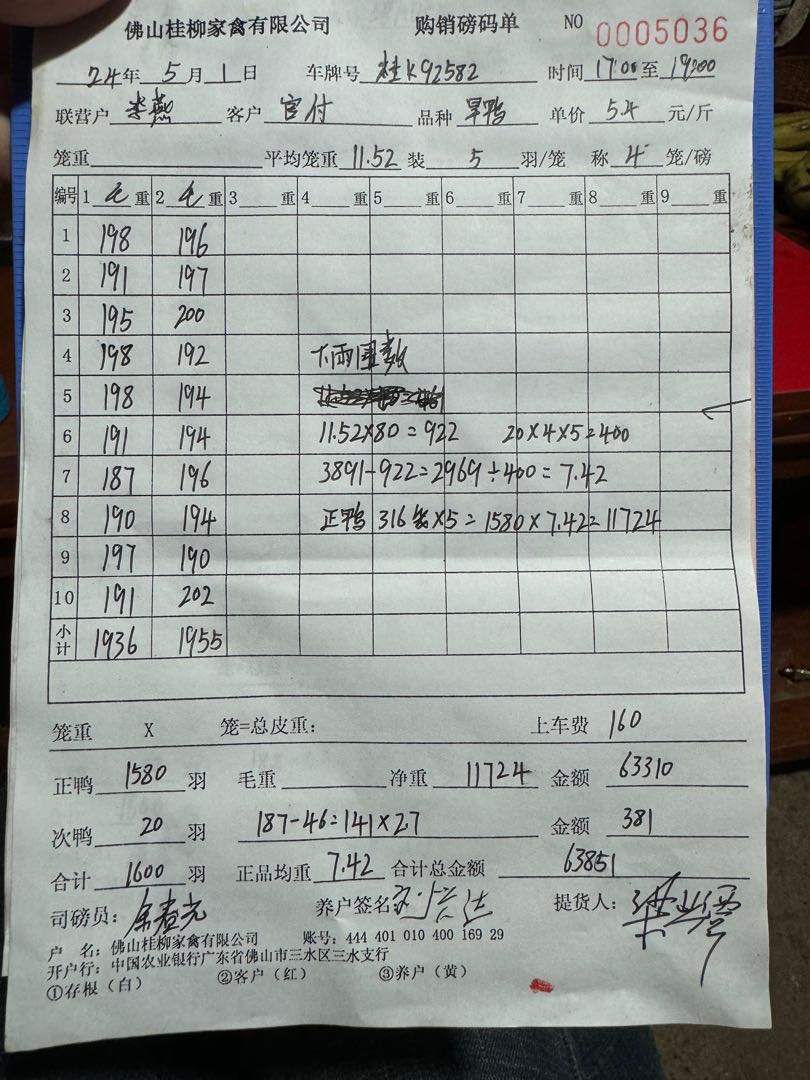 佛山桂柳家禽有限公司 购销磅码单 NO 0005036
24年 5月 1日 车牌号 桂K92582 时间 17:00至 19:00
联营户 李燕 客户 官付 品种 旱鸭 单价 5.4 元/斤
笼重 平均笼重 11.52 装 5 羽/笼 称 4 笼/磅
编号 1 毛 重 2 毛 重 3 重 4 重 5 重 6 重 7 重 8 重 9 重
1 198 196
2 191 197
3 195 200
4 198 192 下雨
5 198 194
6 191 194 11.52×80=922 20×4×5=400
7 187 196 3891-922=2969÷400=7.42
8 190 194 正鸭 316笼×5=1580×7.42=11724
9 197 190
10 191 202
小计 1936 1955
笼重 X 笼=总皮重: 上车费 160
正鸭 1580 羽 毛重 净重 11724 金额 63310
次鸭 20 羽 187-46=141×27 金额 381
合计 1600 羽 正品均重 7.42 合计总金额 63851
司磅员: 养户签名 提货人:
户 名: 佛山桂柳家禽有限公司 账号: 444 401 010 400 169 29
开户行: 中国农业银行广东省佛山市三水区三水支行
①存根(白) ②客户(红) ③养户(黄)